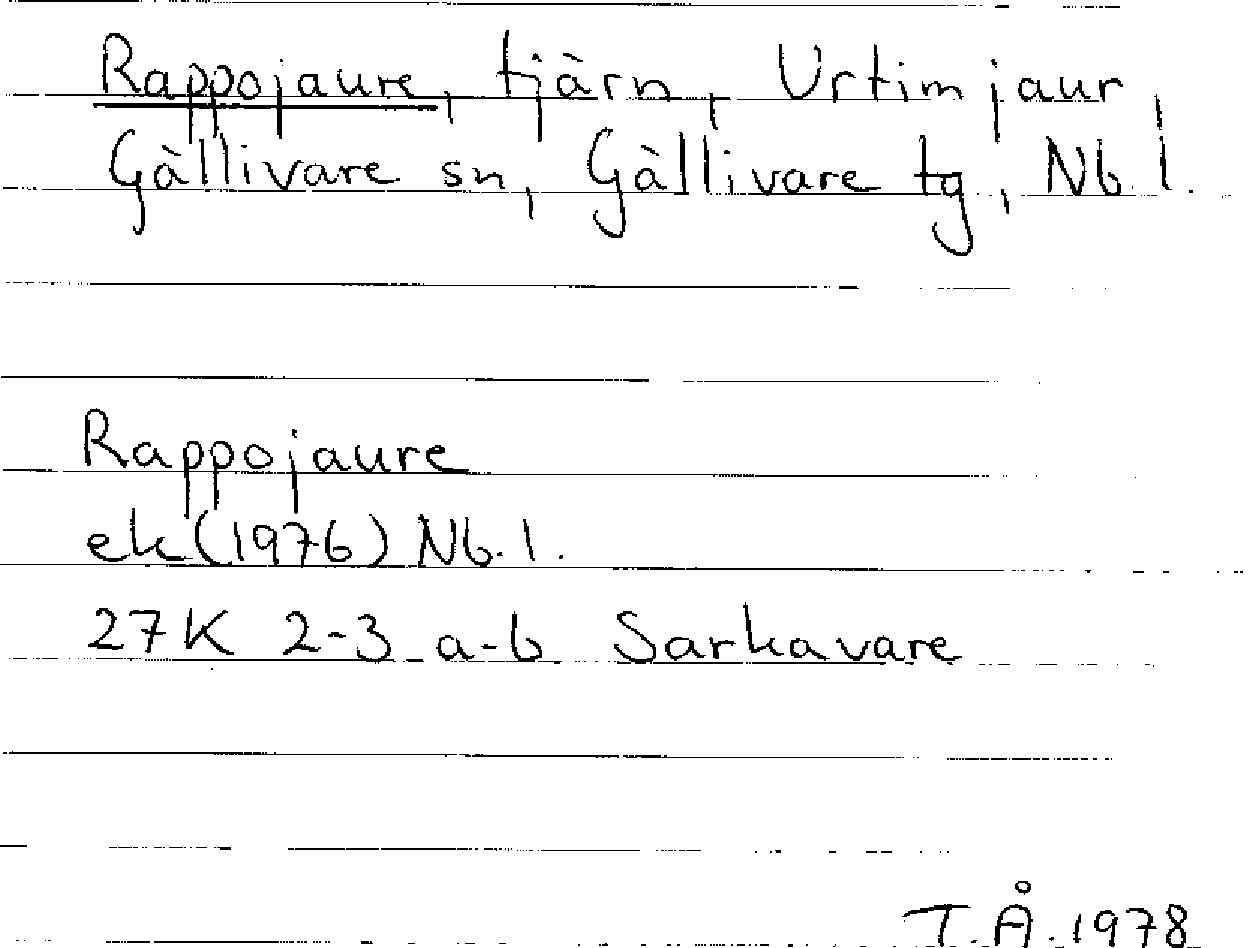 Rappojaure, tjärn, Urtimjaur,
Gällivare sn, Gällivare tg, Nb.l.
Rappojaure
ek (1976) Nb.l.
27K 2-3 a-b Sarkavare
T.Å.1978